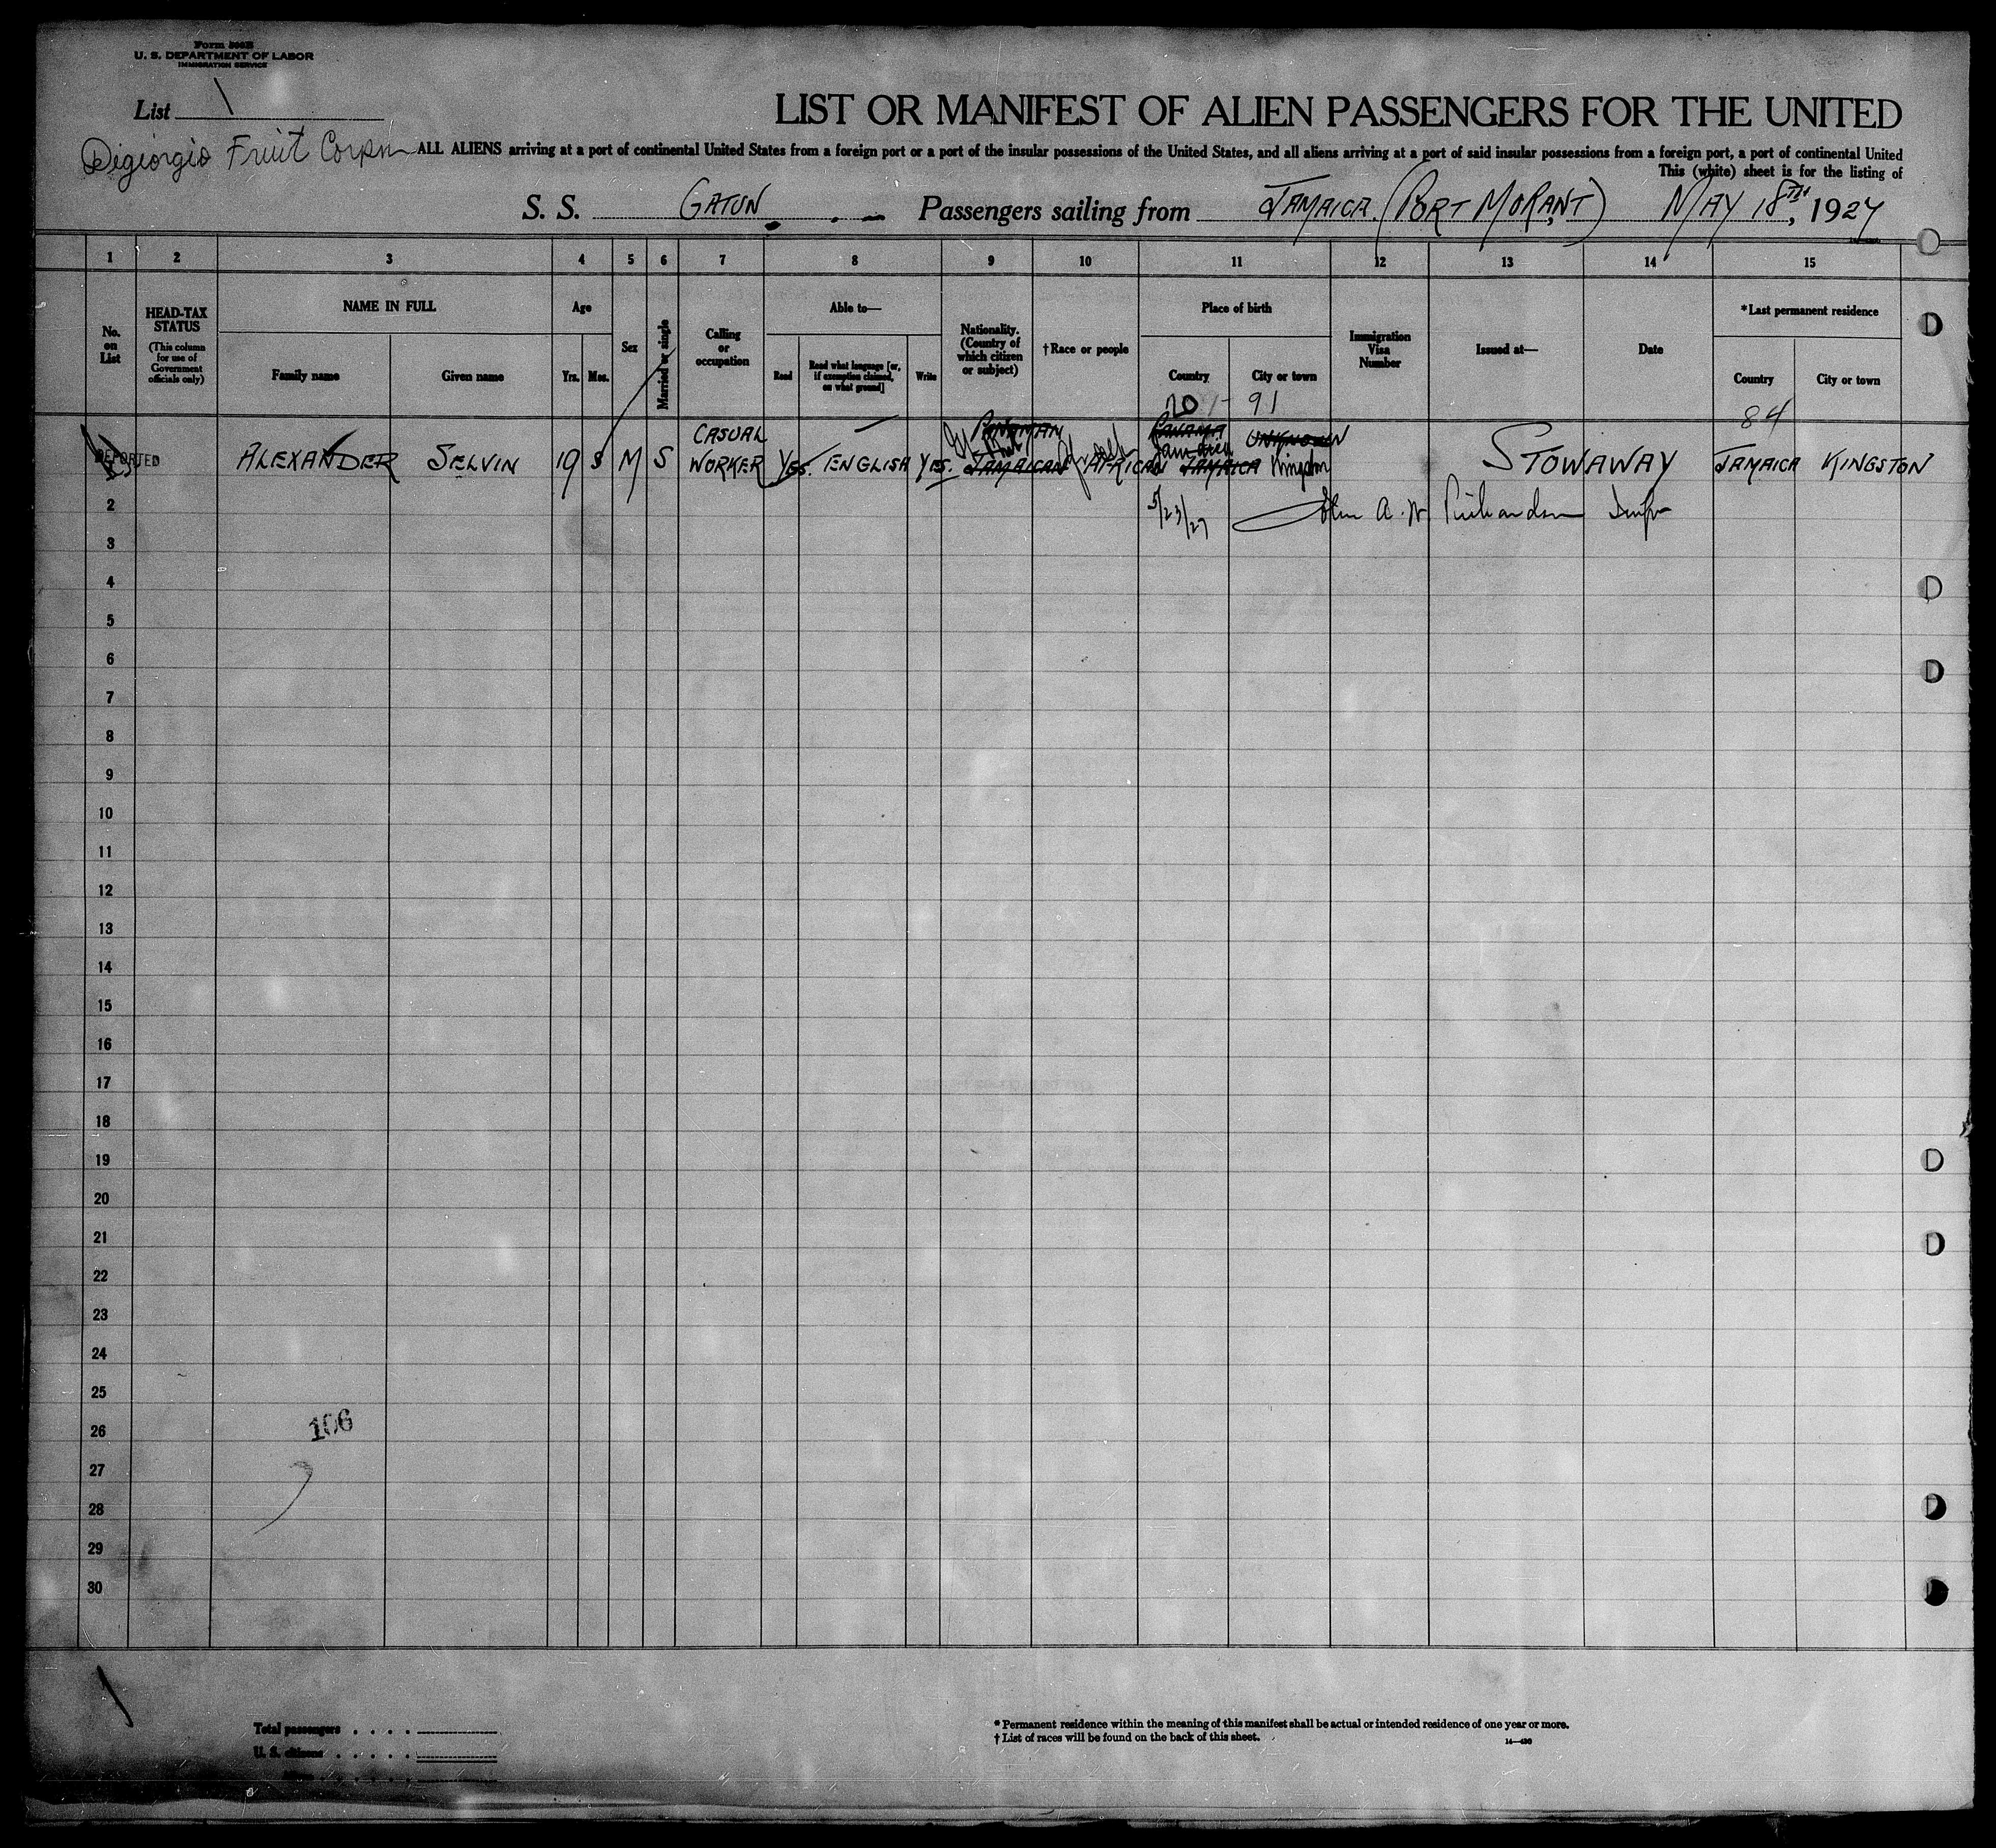 Form 500B
U. S. DEPARTMENT OF LABOR
IMMIGRATION SERVICE
List 1
LIST OR MANIFEST OF ALIEN PASSENGERS FOR THE UNITED
Digiorgio Fruit Corpn
ALL ALIENS arriving at a port of continental United States from a foreign port or a port of the insular possessions of the United States, and all aliens arriving at a port of said insular possessions from a foreign port, a port of continental United
This (white) sheet is for the listing of
S. S. GATUN Passengers sailing from JAMAICA (PORT MORANT) MAY 18TH, 1927
1 2 3 4 5 6 7 8 9 10 11 12 13 14 15
No. on List
HEAD-TAX STATUS
(This column for use of Government officials only)
NAME IN FULL
Family name
Given name
Age
Yrs.
Mos.
Sex
Married or single
Calling or occupation
Able to—
Read
Read what language [or, if exemption claimed, on what ground]
Write
Nationality. (Country of which citizen or subject)
†Race or people
Place of birth
Country
City or town
Immigration Visa Number
Issued at—
Date
*Last permanent residence
Country
City or town
20 91 84
CASUAL PANAMAN PANAMA UNKNOWN
DEPORTED ALEXANDER SELVIN 19 S M S WORKER YES. ENGLISH YES. JAMAICAN AFRICAN Jamaica JAMAICA Kingston STOWAWAY JAMAICA KINGSTON
2 5/23/27 John A. W. Richardson
3
4
5
6
7
8
9
10
11
12
13
14
15
16
17
18
19
20
21
22
23
24
25
26
106
27
28
29
30
Total passengers . . . .
U. S. citizens . . . . .
* Permanent residence within the meaning of this manifest shall be actual or intended residence of one year or more.
† List of races will be found on the back of this sheet.